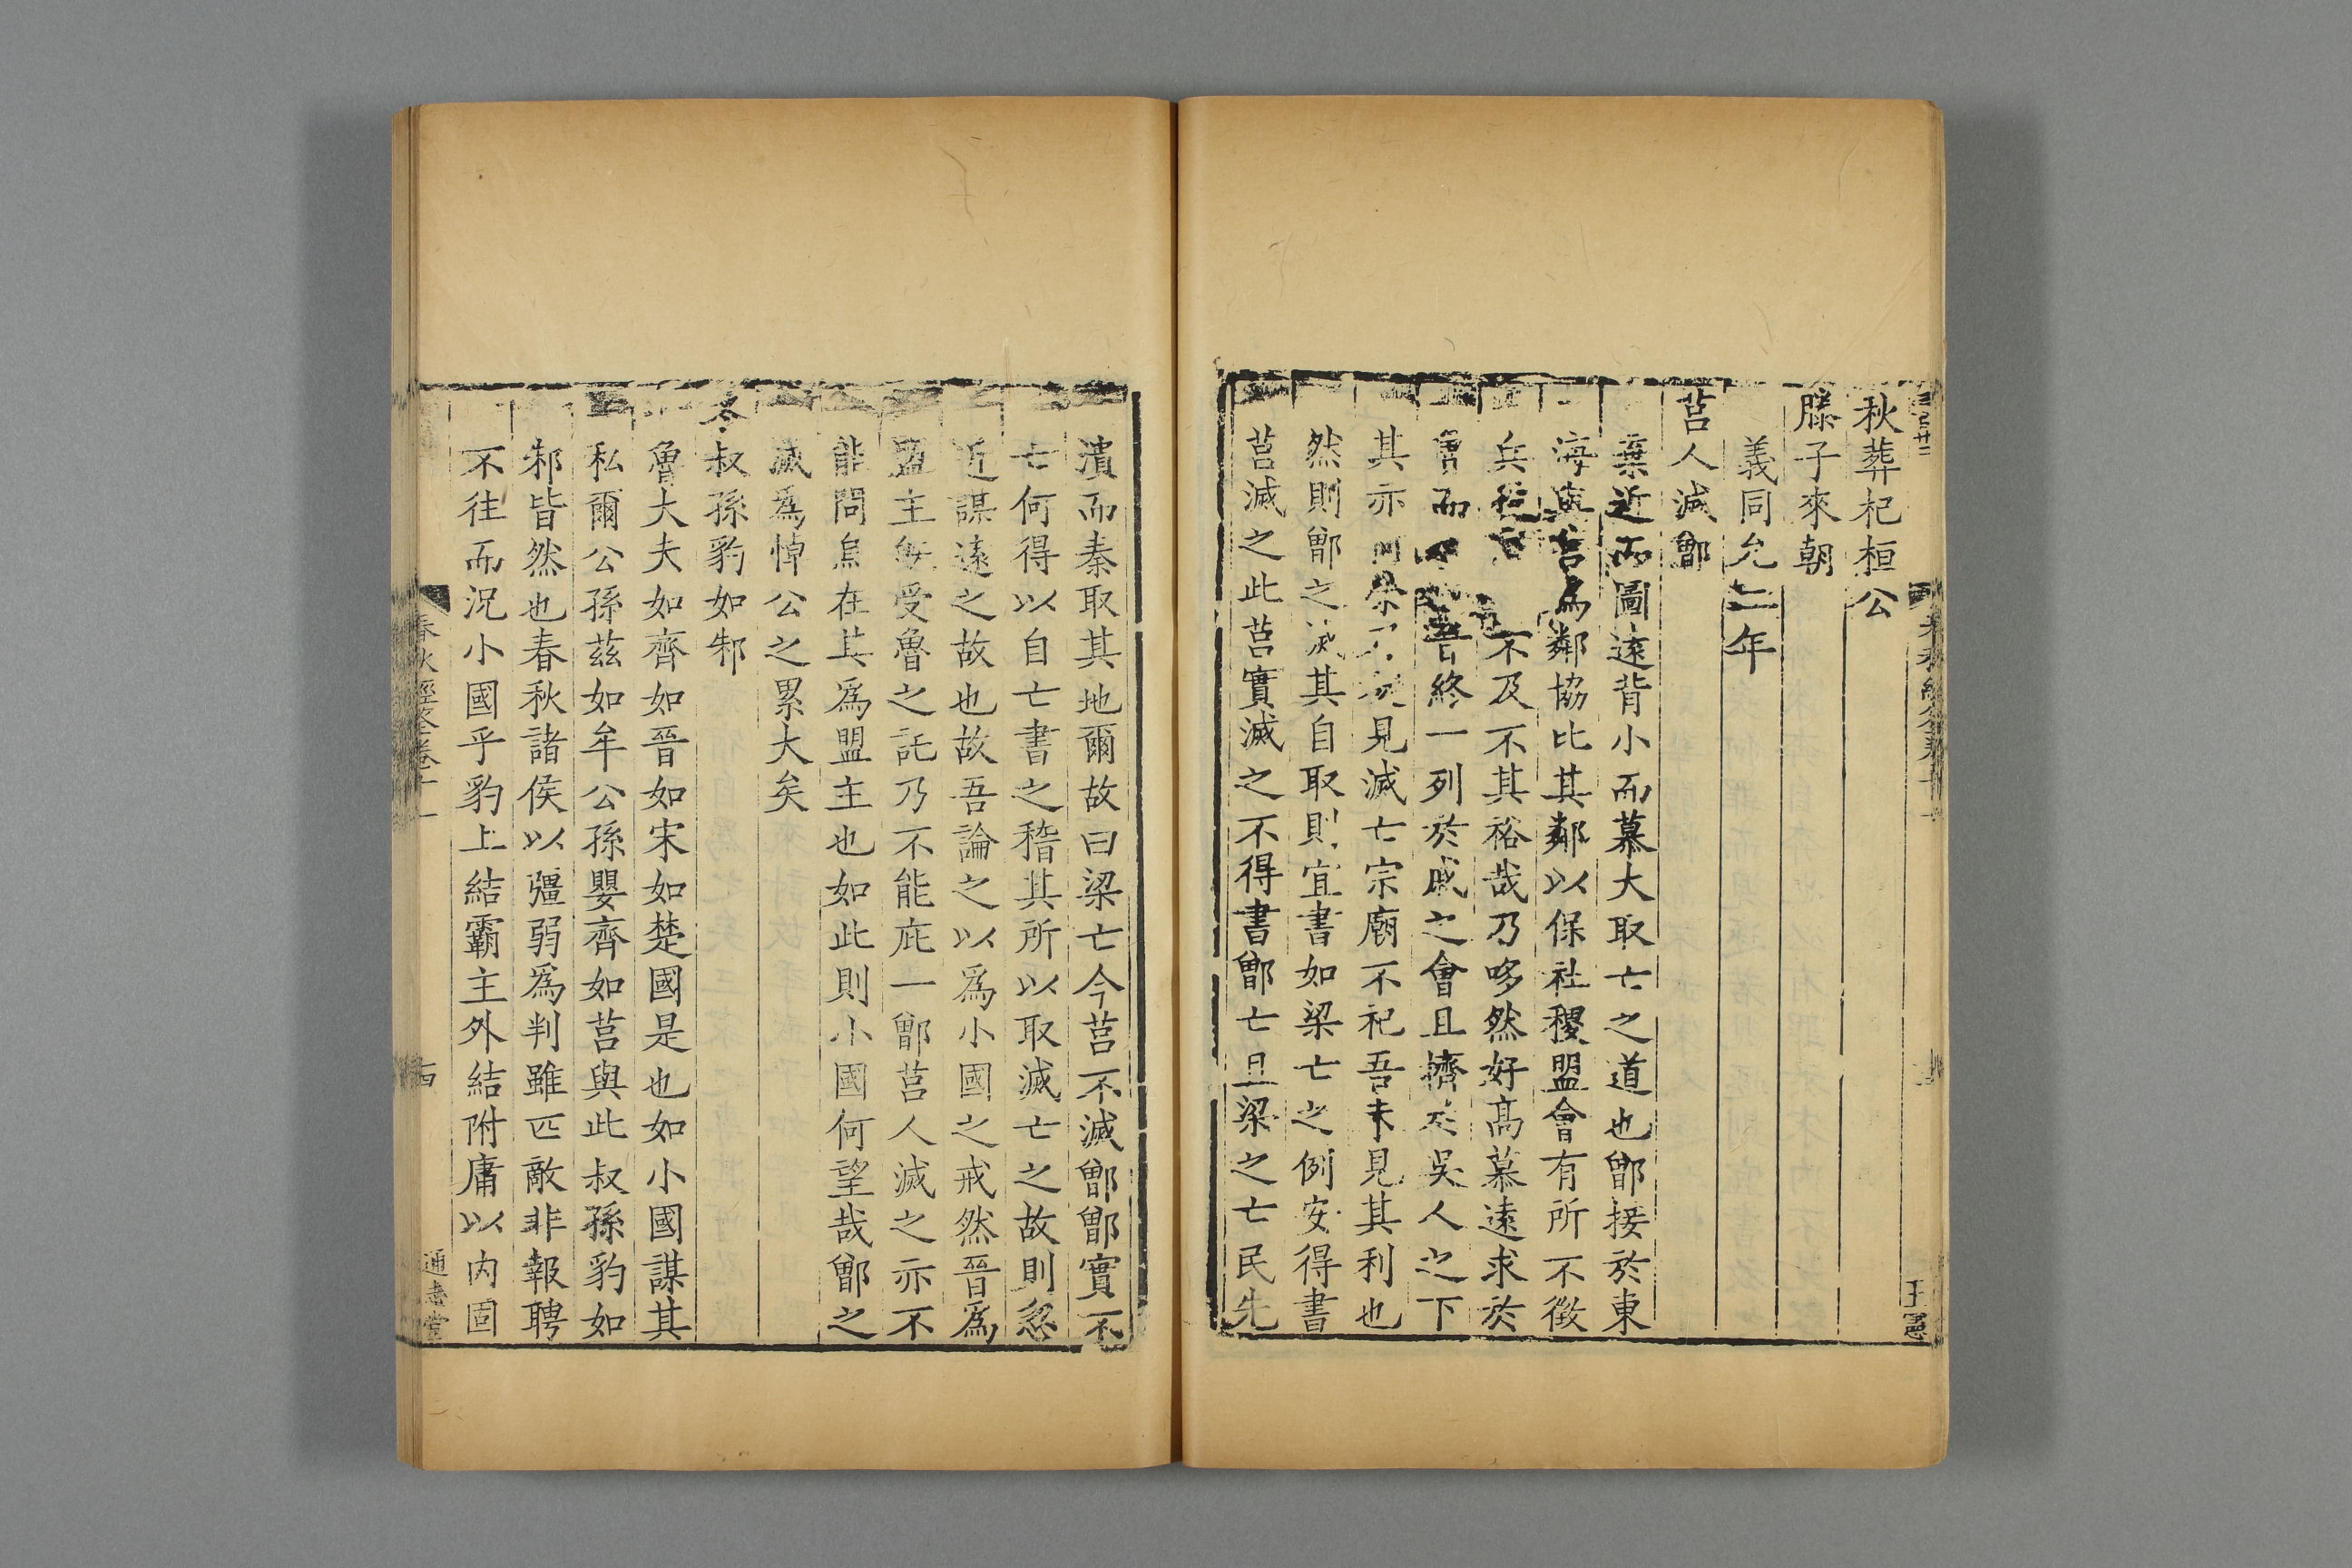 秋葬杞桓公
滕子來朝
義同允二年
莒人滅鄫
棄近而圖遠背小而慕大取亡之道也鄫接於東
海與莒為鄰協比其鄰以保社稷盟會有所不徵
兵 不及不其裕哉乃哆然好高慕遠求於
而 終一列於戚之會且擠於吳人之下
其亦 見滅亡宗廟不祀吾未見其利也
然則鄫之滅其自取則宜書如梁亡之例安得書
莒滅之此莒實滅之不得書鄫亡且梁之亡民先
王寬
潰而秦取其地爾故曰梁亡今莒不滅鄫鄫實不
亡何得以自亡書之稽其所以取滅亡之故則忽
近謀遠之故也故吾論之以為小國之戒然晉為
盟主毎受魯之託乃不能庇一鄫莒人滅之亦不
能問烏在其為盟主也如此則小國何望哉鄫之
滅為悼公之累大矣
冬叔孫豹如邾
魯大夫如齊如晉如宋如楚國是也如小國謀其
私爾公孫茲如牟公孫嬰齊如莒與此叔孫豹如
邾皆然也春秋諸侯以彊弱為判雖匹敵非報聘
不往而況小國乎豹上結霸主外結附庸以內固
春秋經筌卷十一
通志堂